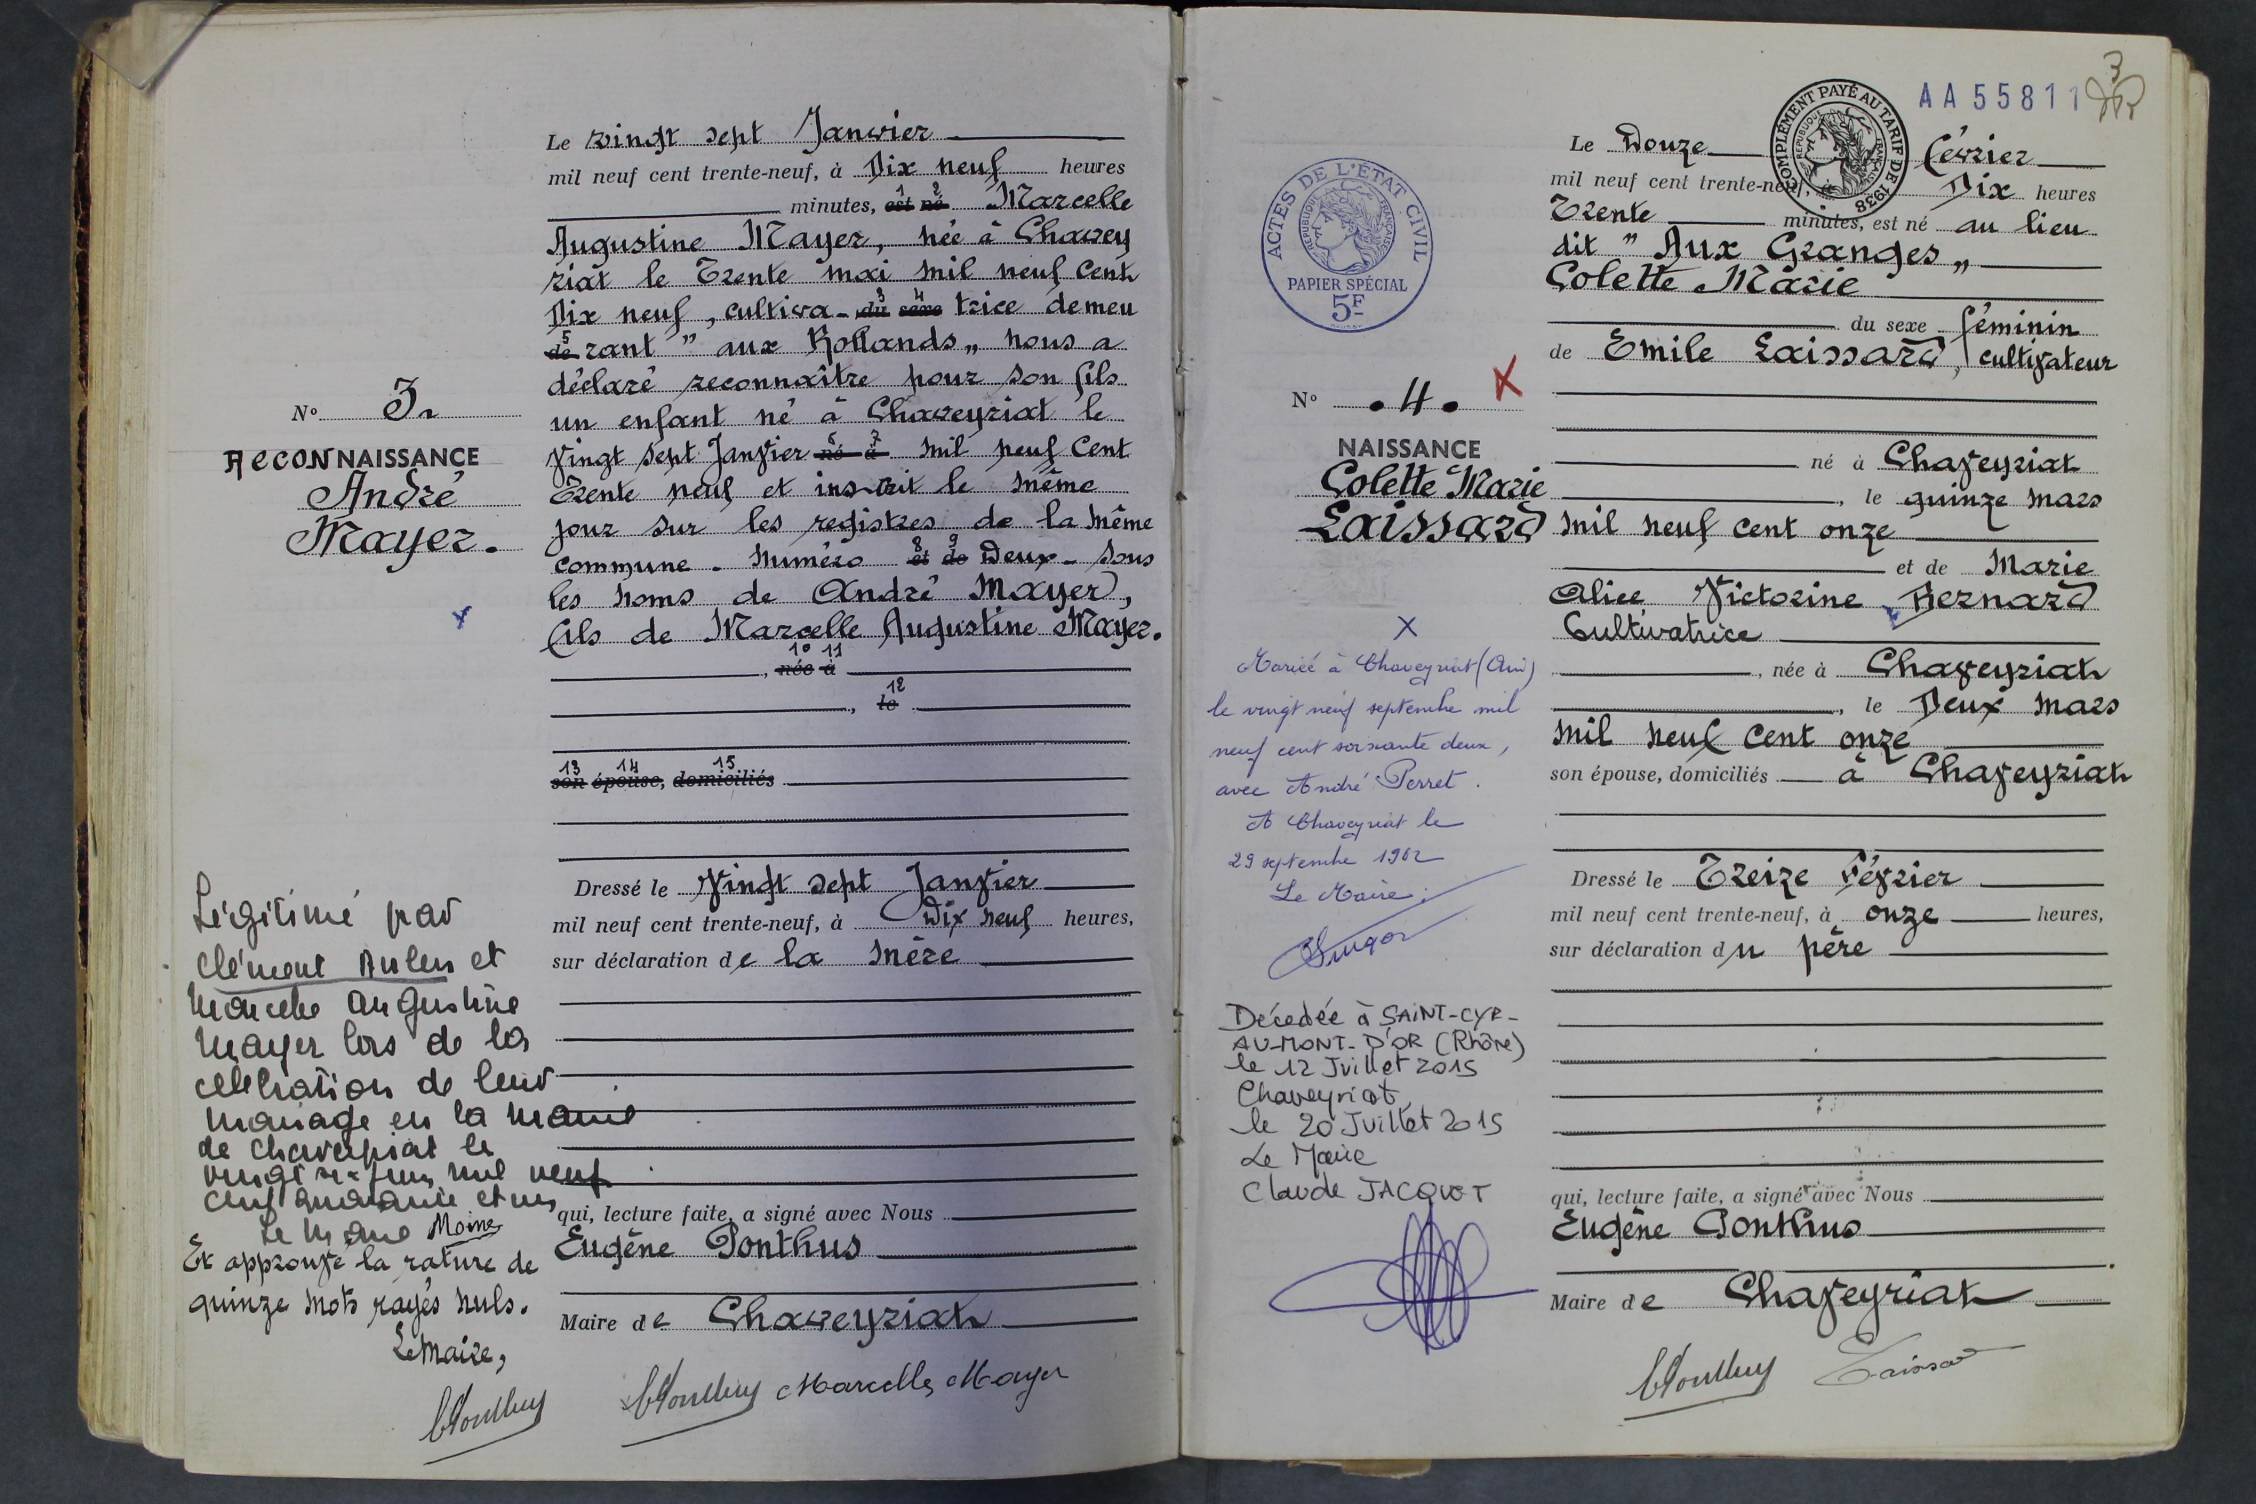 Le vingt sept Janvier
mil neuf cent trente-neuf, à Dix neuf heures
minutes, est né Marcelle
1 2
Augustine Mayer, née à Chavey
riat le Trente mai mil neuf cent
Dix neuf, cultiva- du sexe trice demeu
3 4
de rant " aux Rollands „ nous a
5
déclaré reconnaître pour son fils
un enfant né à Chaveyriat le
vingt sept Janvier né à mil neuf cent
6 7
Trente neuf et inscrit le même
jour sur les registres de la même
commune. numéro et de Deux - sous
8 9
les noms de André Mayer,
fils de Marcelle Augustine Mayer.
10 11
, née à
12
, le
13 14 15
son épouse, domiciliés
Dressé le vingt sept Janvier
mil neuf cent trente-neuf, à Dix neuf heures,
sur déclaration de la mère
qui, lecture faite, a signé avec Nous
Eugène Ponthus
Maire de Chaveyriat
Marcelle Mayer
No 3
RECONNAISSANCE
André
Mayer.
Légitimé par
Clément et
Marcelle Augustine
Mayer lors de la
célébration de leur
mariage en la mairie
de Chaveyriat le
vingt six juin mil neuf
cent quarante et un
Le Maire Moine
Et approuvé la rature de
quinze mots rayés nuls.
Le Maire,
3
AA55811
COMPLÉMENT PAYÉ AU TARIF DE 1938
RÉPUBLIQUE FRANÇAISE
ACTES DE L'ÉTAT CIVIL
RÉPUBLIQUE FRANÇAISE
PAPIER SPÉCIAL
5F
Le Douze Février
mil neuf cent trente-neuf, Dix heures
Trente minutes, est né au lieu
dit " Aux Granges „
Colette Marie
du sexe féminin
de Emile Laissard, cultivateur
né à Chaveyriat
, le quinze mars
mil neuf cent onze
et de Marie
Alice Victorine Bernard
Cultivatrice
, née à Chaveyriat
, le Deux mars
mil neuf cent onze
son épouse, domiciliés à Chaveyriat
Dressé le Treize Février
mil neuf cent trente-neuf, à onze heures,
sur déclaration du père
qui, lecture faite, a signé avec Nous
Eugène Ponthus
Maire de Chaveyriat
Laissard
No .4. X
NAISSANCE
Colette Marie
Laissard
X
Mariée à Chaveyriat (Ain)
le vingt neuf septembre mil
neuf cent soixante deux,
avec André Perret.
A Chaveyriat le
29 septembre 1962
Le Maire.
Décedée à SAINT-CYR-
AU-MONT-D'OR (Rhône)
le 12 Juillet 2015
Chaveyriat,
le 20 Juillet 2015
Le Maire
Claude JACQUET